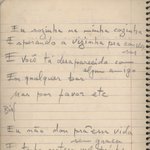 Eu sozinha na minha cozinha
Esperando a vizinha pra
E você tá desaparecida com
algum amigo
Em qualquer bar
Mas por favor etc
Eu não dou pra em vida
sem graça